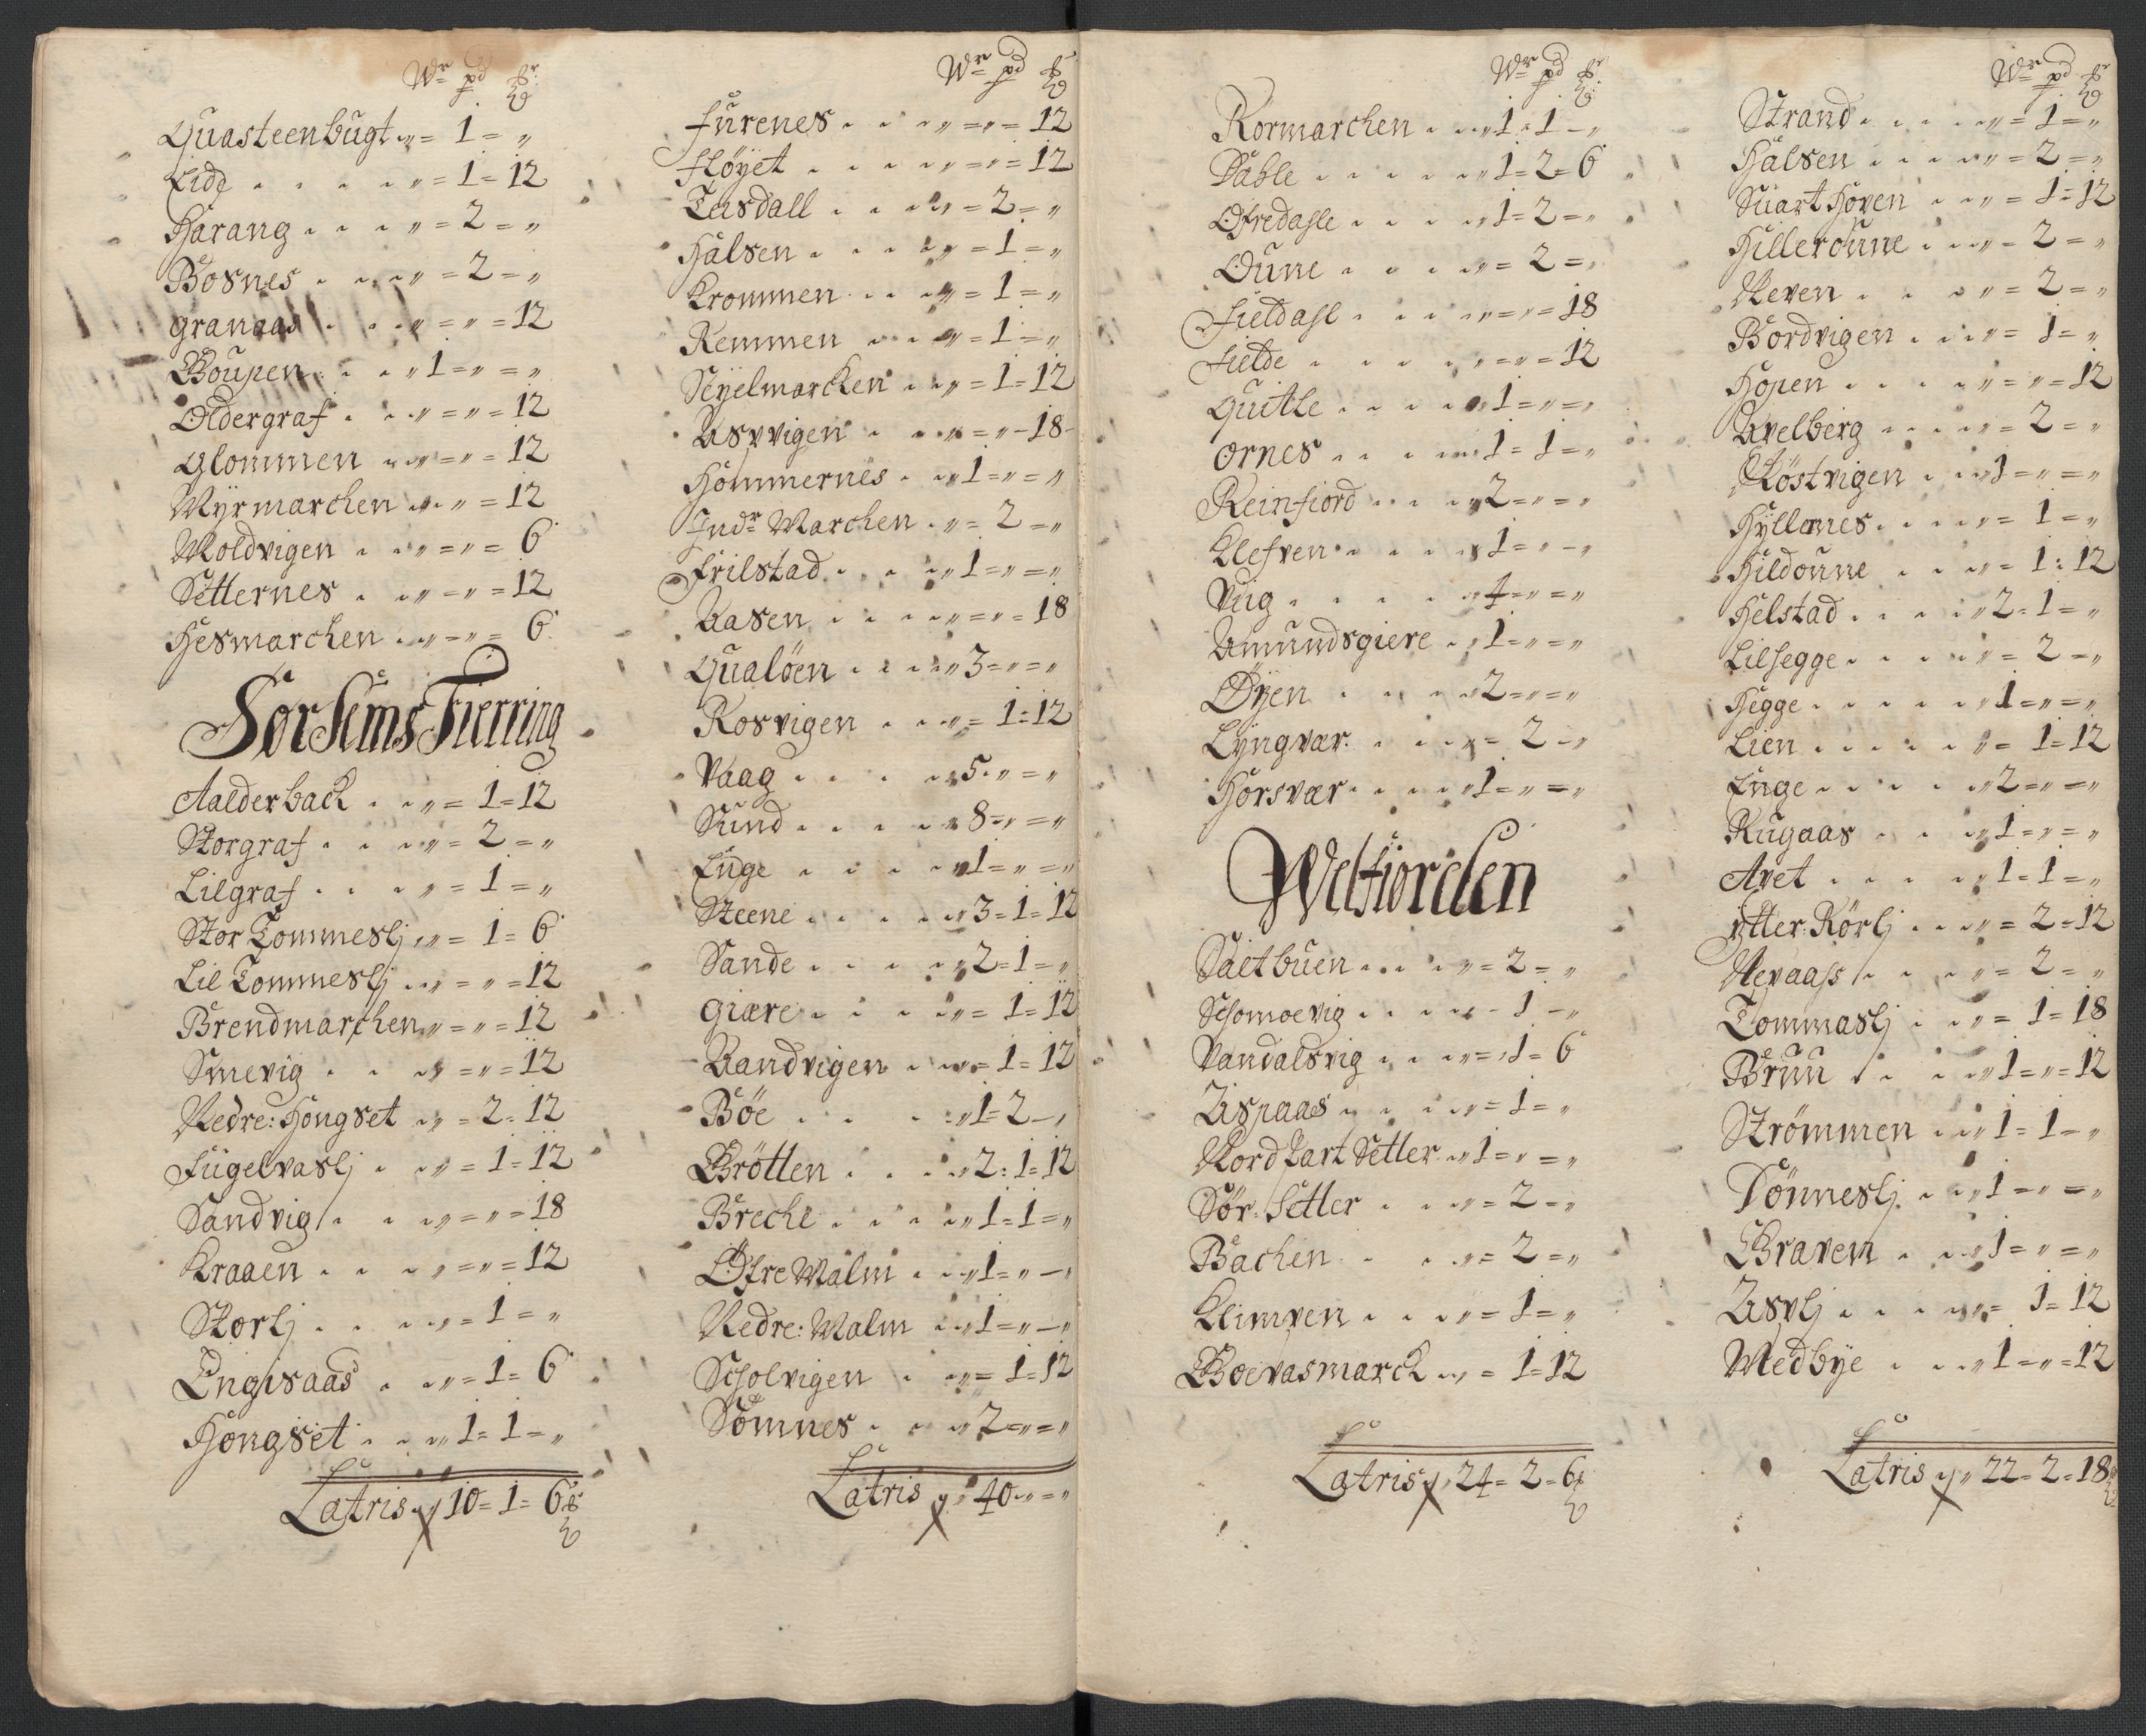 Wr pd
Quasteenbugt „ = 1 = „
Lide . . . . „ = 1 = 12
Harang . . . „ = 2 = „
Bosnes . . . „ = 2 = „
granaas . . . „ = „ = 12
Boupen . . . „ 1 = „ = „
Oldergraf . . . „ = „ = 12
Glommen . . „ = „ = 12
Myrmarchen . . „ = 12
Moldvigen . . „ = „ = 6
Setternes . . . „ = „ = 12
Hesmarchen . . „ = „ = 6
Sør Sems Fierring
Aalderback . . „ = 1 = 12
Storgraf . . . „ = 2 = „
Lilgraf . . . „ = 1 = „
Stor Tommeslj „ = 1 = 6
Lil Tommeslj . . „ = „ = 12
Brendmarchen „ = „ = 12
Smevig . . . „ = „ = 12
Nedre: Hongset . „ = 2 = 12
Fugelvaslj . . „ = 1 = 12
Sandvig . . . „ = „ = 18
Kraaen . . . „ = „ = 12
Storlj . . . „ = 1 = „
Engisaas . . „ = 1 = 6
Hongset . . . „ 1 = 1 = „
Latris „ 10 = 1 = 6
Wr pd
Furenes . . . „ = „ = 12
Fløyet . . . . „ = „ = 12
Teisdall . . . „ = 2 = „
Halsen . . . . „ = 1 = „
Krommen . . . „ = 1 = „
Remmen . . . „ = 1 = „
Seyelmarchen . . „ = 1 = 12
Asvvigen . . . „ = „ = 18
Hommernes . . „ 1 = „ = „
Indr Marchen . „ = 2 = „
Frilstad . . . „ 1 = „ = „
Aasen . . . . „ = „ = 18
Qualöen . . . . „ 3 = „ = „
Rosvigen . . . „ = 1 = 12
Vaag . . . . „ 5 = „ = „
Sund . . . . „ 8 = „ = „
Enge . . . . „ 1 = „ = „
Steene . . . . „ 3 = 1 = 12
Sande . . . . „ 2 = 1 = „
Giære . . . . „ = 1 = 12
Aandvigen . . „ = 1 = 12
Böe . . . . „ 1 = 2 = „
Brötten . . . „ 2 = 1 = 12
Breche . . . . „ 1 = 1 = „
Øfre Malm . . „ 1 = „ = „
Nedre: Malm . . „ 1 = „ = „
Scholvigen . . „ = 1 = 12
Somnes . . . „ 2 = „ = „
Latris „ 40 = „ = „
Wr pd
Rormarchen . . „ 1 = 1 = „
Dahle . . . . „ 1 = 2 = 6
Ofredahle . . . „ 1 = 2 = „
Oune . . . . „ = 2 = „
Fieldahl . . . „ = „ = 18
Fielde . . . . „ = „ = 12
Quitle . . . . „ 1 = „ = „
Ornes . . . . „ 1 = 1 = „
Reinfiord . . . „ 2 = „ = „
Klefven . . . . „ 1 = „ = „
Viig . . . . „ 4 = „ = „
Amundsgiere . . „ 1 = „ = „
Øyen . . . . „ 2 = „ = „
Lyngvær . . . „ = 2 = „
Horsvær . . . . „ 1 = „ = „
Welfiorden
Saltbuen . . . „ = 2 = „
Schomoevig . . . „ = 1 = „
Vandalsvig . . . „ = 1 = 6
Aspaas . . . . „ = 1 = „
Nord Lart Setter . „ 1 = „ = „
Sör: Setter . . . „ = 2 = „
Bachen . . . „ = 2 = „
Klimven . . . „ = 1 = „
Boevasmarck . „ = 1 = 12
Latris „ 24 = 2 = 6
Wr pd
Strand . . . . „ = 1 = „
Halsen . . . . „ = 2 = „
Suart Hoven . . „ = 1 = 12
Hilleroune . . . „ = 2 = „
Neven . . . . „ = 2 = „
Bordvigen . . . „ = 1 = „
Hopen . . . . „ = „ = 12
Avelberg . . . . „ = 2 = „
Röstvigen . . . „ 1 = „ = „
Hyllernes . . . . „ = 1 = „
Hildoune . . . „ = 1 = 12
Helstad . . . . „ 2 = 1 = „
Lilhegge . . . . „ = 2 = „
Hegge . . . . „ 1 = „ = „
Lien . . . . . „ = 1 = 12
Enge . . . . „ 2 = „ = „
Rugaas . . . . „ 1 = „ = „
Aret . . . . „ 1 = 1 = „
ytter: Rörlj . . . „ = 2 = 12
Nevaass . . . „ = 2 = „
Tommaslj . . . „ = 1 = 18
Bruu . . . . „ 1 = „ = 12
Strömmen . . „ 1 = 1 = „
Tönneslj . . „ 1 = „ = „
Graven . . . „ 1 = „ = „
Asvlj . . . . „ = 1 = 12
Medbye . . . „ 1 = „ = 12
Latris „ 22 = 2 = 18